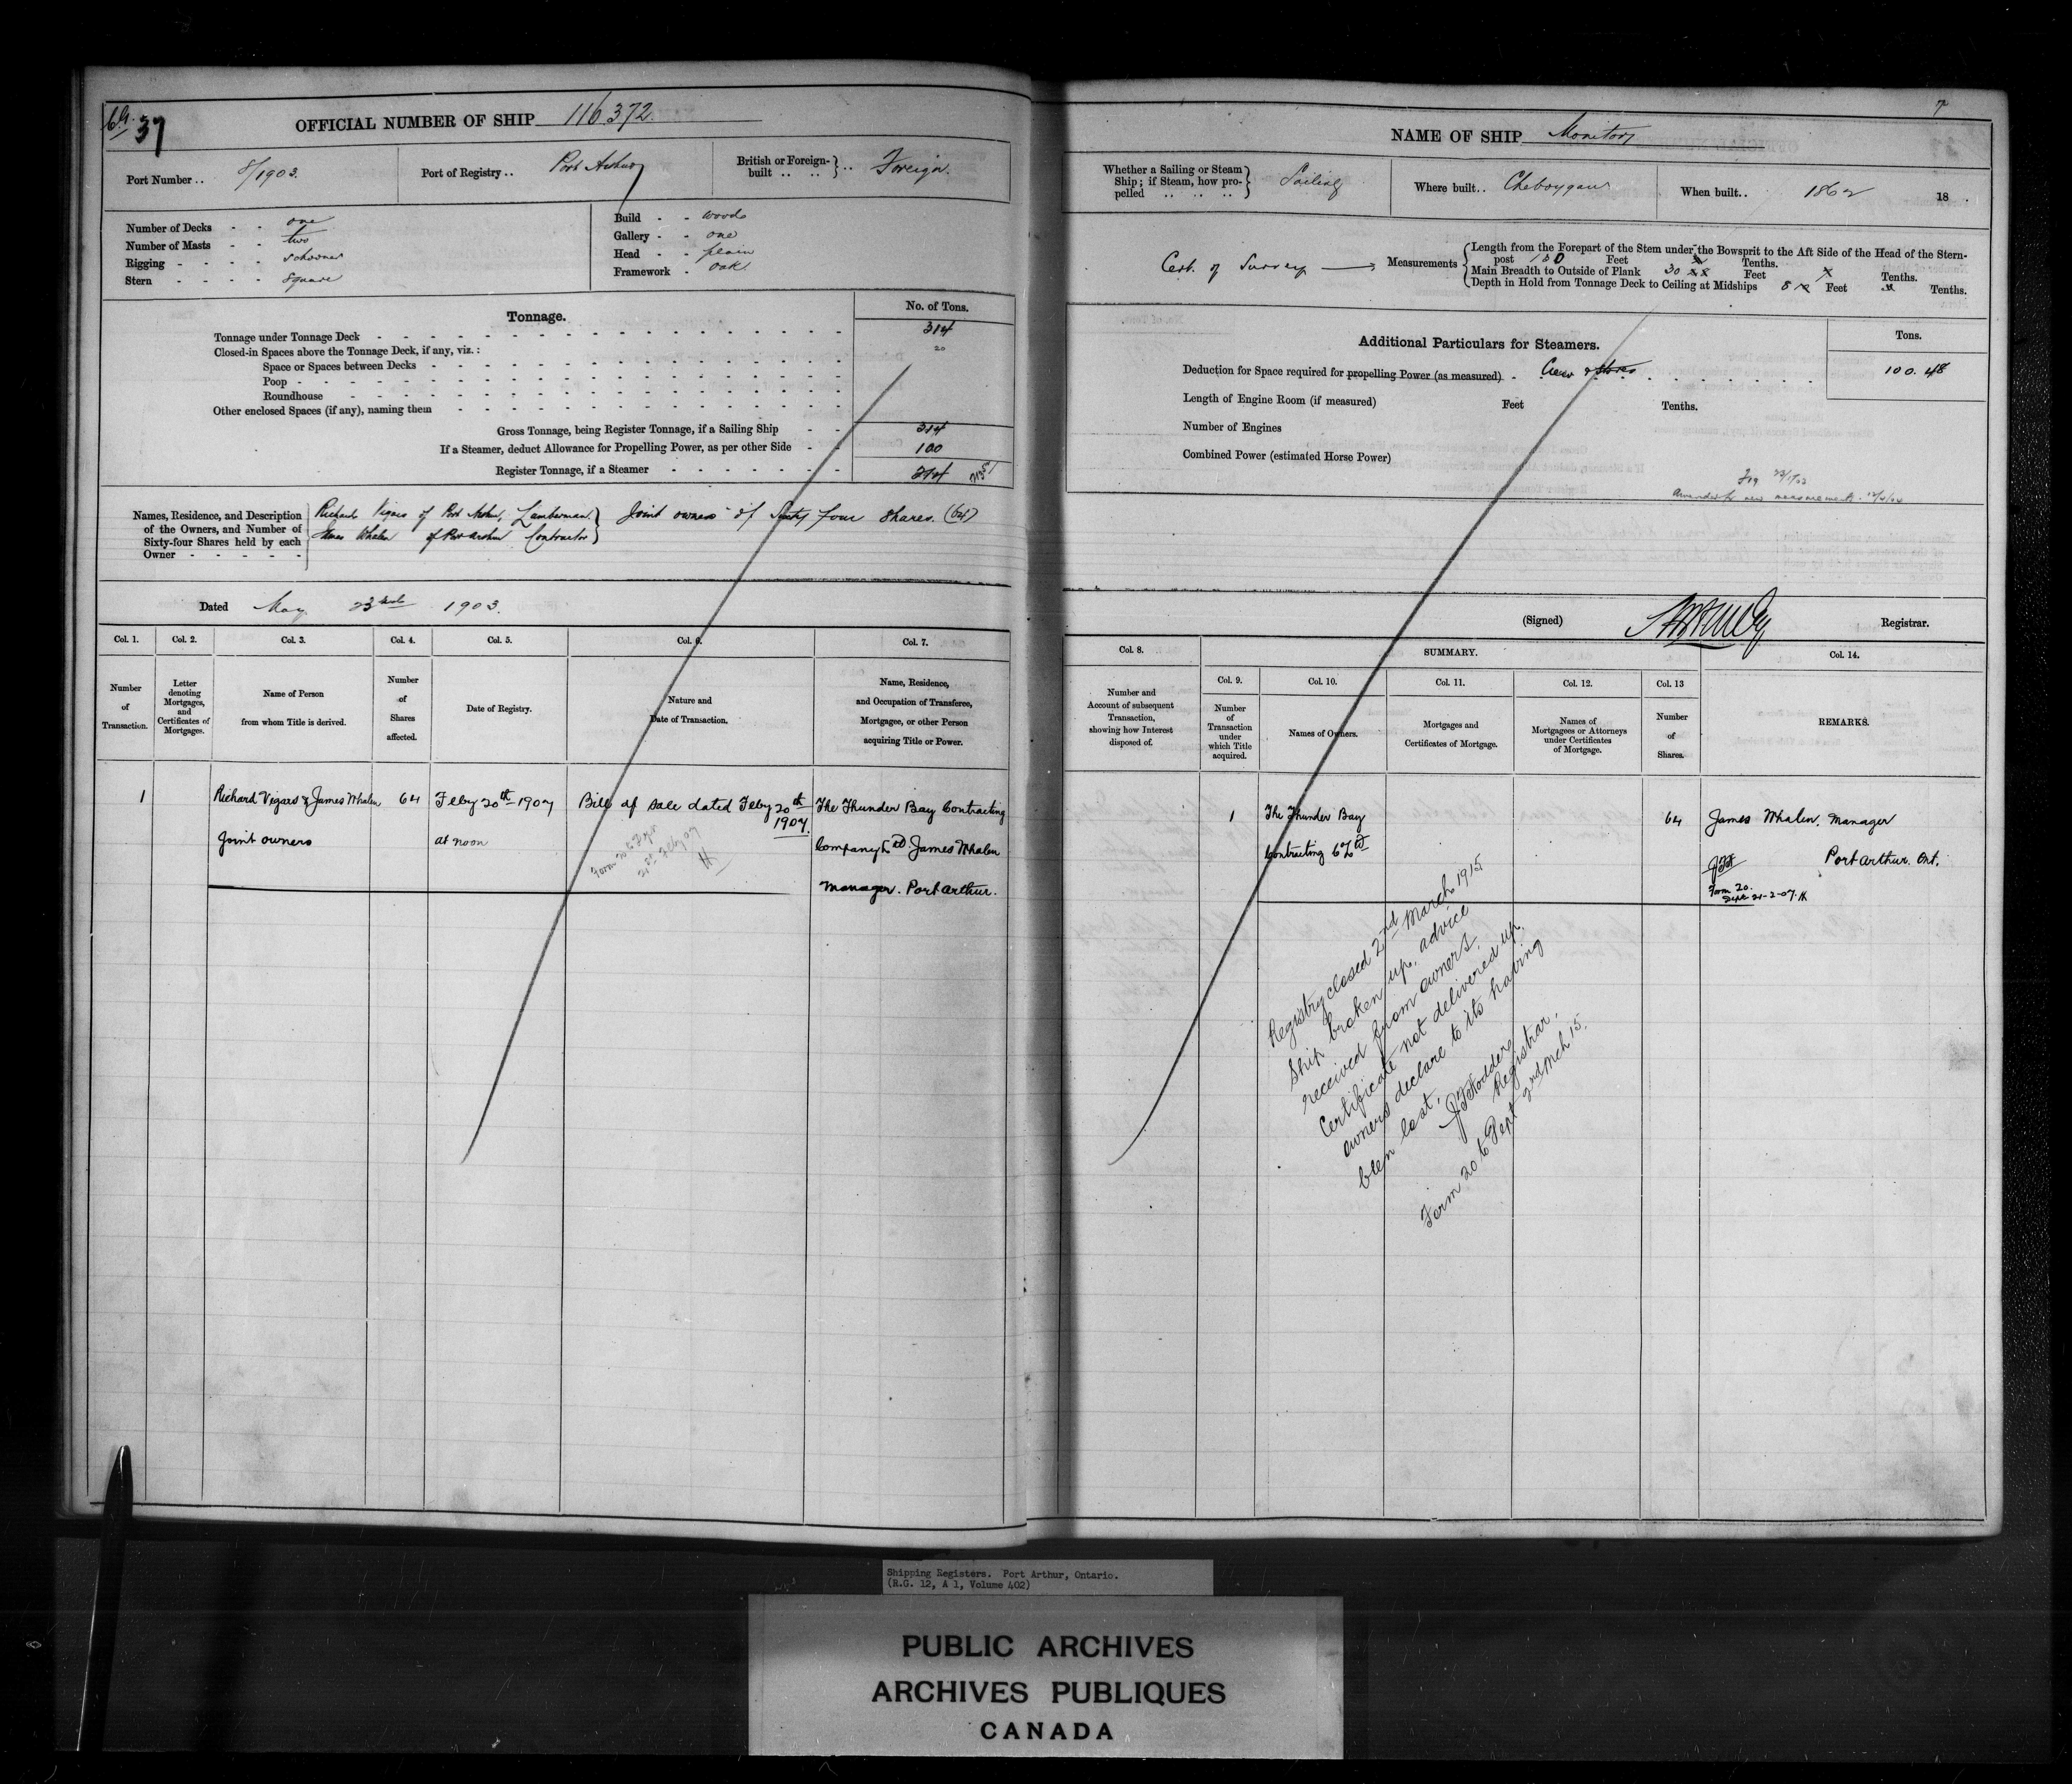 37
OFFICIAL NUMBER OF SHIP 116.372.
Port Number .. 8/1903.
Port of Registry .. Port Arthur
British or Foreign-built .. .. } .. Foreign.
Number of Decks - - one
Number of Masts - - two
Rigging - - - - schooner
Stern - - - - square
Build - - wood
Gallery - - one
Head - - plain
Framework - oak
Tonnage.
No. of Tons.
Tonnage under Tonnage Deck 314
Closed-in Spaces above the Tonnage Deck, if any, viz.: 20
Space or Spaces between Decks
Poop
Roundhouse
Other enclosed Spaces (if any), naming them
Gross Tonnage, being Register Tonnage, if a Sailing Ship 314
If a Steamer, deduct Allowance for Propelling Power, as per other Side 100
Register Tonnage, if a Steamer 214
Names, Residence, and Description of the Owners, and Number of Sixty-four Shares held by each Owner
Richard Vigars of Port Arthur, Lumberman }
James Whalen of Port Arthur Contractor }
Joint owners of Sixty four shares. (64)
Dated May 23rd 1903.
Col. 1. Col. 2. Col. 3. Col. 4. Col. 5. Col. 6. Col. 7.
Number of Transaction.
Letter denoting Mortgages, and Certificates of Mortgages.
Name of Person from whom Title is derived.
Number of Shares affected.
Date of Registry.
Nature and Date of Transaction.
Name, Residence, and Occupation of Transferee, Mortgagee, or other Person acquiring Title or Power.
1 Richard Vigars & James Whalen 64 Feby 20th 1907 Bill of sale dated Feby 20th The Thunder Bay Contracting
1907.
Joint owners at noon Company Ltd James Whalen
manager. Port Arthur.
21st Feby 07
H
7
NAME OF SHIP Monitor
Whether a Sailing or Steam Ship; if Steam, how propelled .. .. .. } Sailing
Where built .. Cheboygan
When built .. 1862 18 .
Cert. of Survey
Measurements
Length from the Forepart of the Stem under the Bowsprit to the Aft Side of the Head of the Stern-
post 130 Feet Tenths.
Main Breadth to Outside of Plank 30 Feet Tenths.
Depth in Hold from Tonnage Deck to Ceiling at Midships 8 Feet Tenths.
Additional Particulars for Steamers.
Tons.
Deduction for Space required for propelling Power (as measured) Crew & stores 100.48
Length of Engine Room (if measured) Feet Tenths.
Number of Engines
Combined Power (estimated Horse Power)
(Signed) Registrar.
Col. 8. SUMMARY. Col. 14.
Col. 9. Col. 10. Col. 11. Col. 12. Col. 13
Number and Account of subsequent Transaction, showing how Interest disposed of.
Number of Transaction under which Title acquired.
Names of Owners.
Mortgages and Certificates of Mortgage.
Names of Mortgagees or Attorneys under Certificates of Mortgage.
Number of Shares.
REMARKS.
1 The Thunder Bay 64 James Whalen, Manager
Contracting Co Ltd Port Arthur. Ont.
Form 20.
Sept 21-2-07. H
Registry closed 2nd March 1915
Ship broken up, advice
received from owners.
Certificate not delivered up.
owners declare to its having
been lost.
Registrar.
Form 20 to Dept 2nd Mch 15.
Shipping Registers. Port Arthur, Ontario.
(R.G. 12, A 1, Volume 402)
PUBLIC ARCHIVES
ARCHIVES PUBLIQUES
CANADA